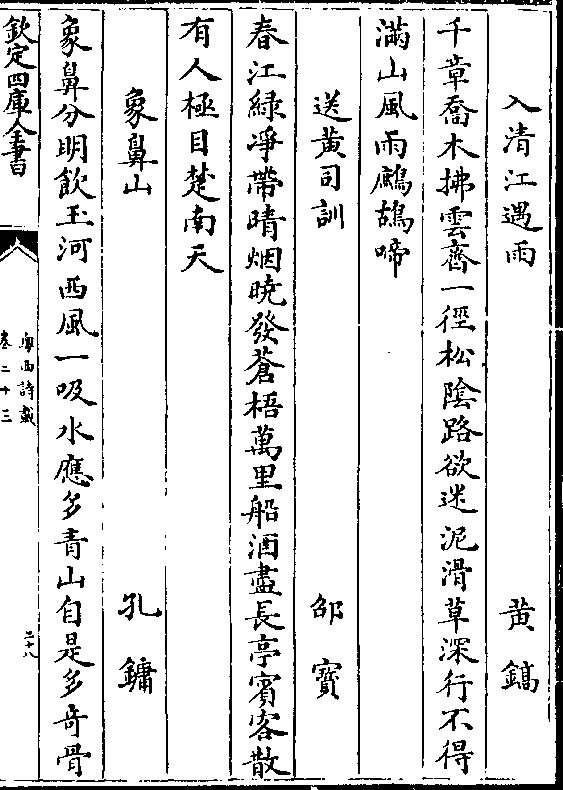 入清江遇雨　黄鎬
千章喬木拂雲齊一徑松陰路欲迷泥滑草深行不得
滿山風雨鷓鴣啼
送黄司訓　邵寶
春江緑凈帶晴烟曉發蒼梧萬里船酒盡長亭賓客散
有人極目楚南天
象鼻山　孔鏞
象鼻分明飲玉河西風一吸水應多青山自是多奇骨
欽定四庫全書
粤西詩載
卷二十三
二十八